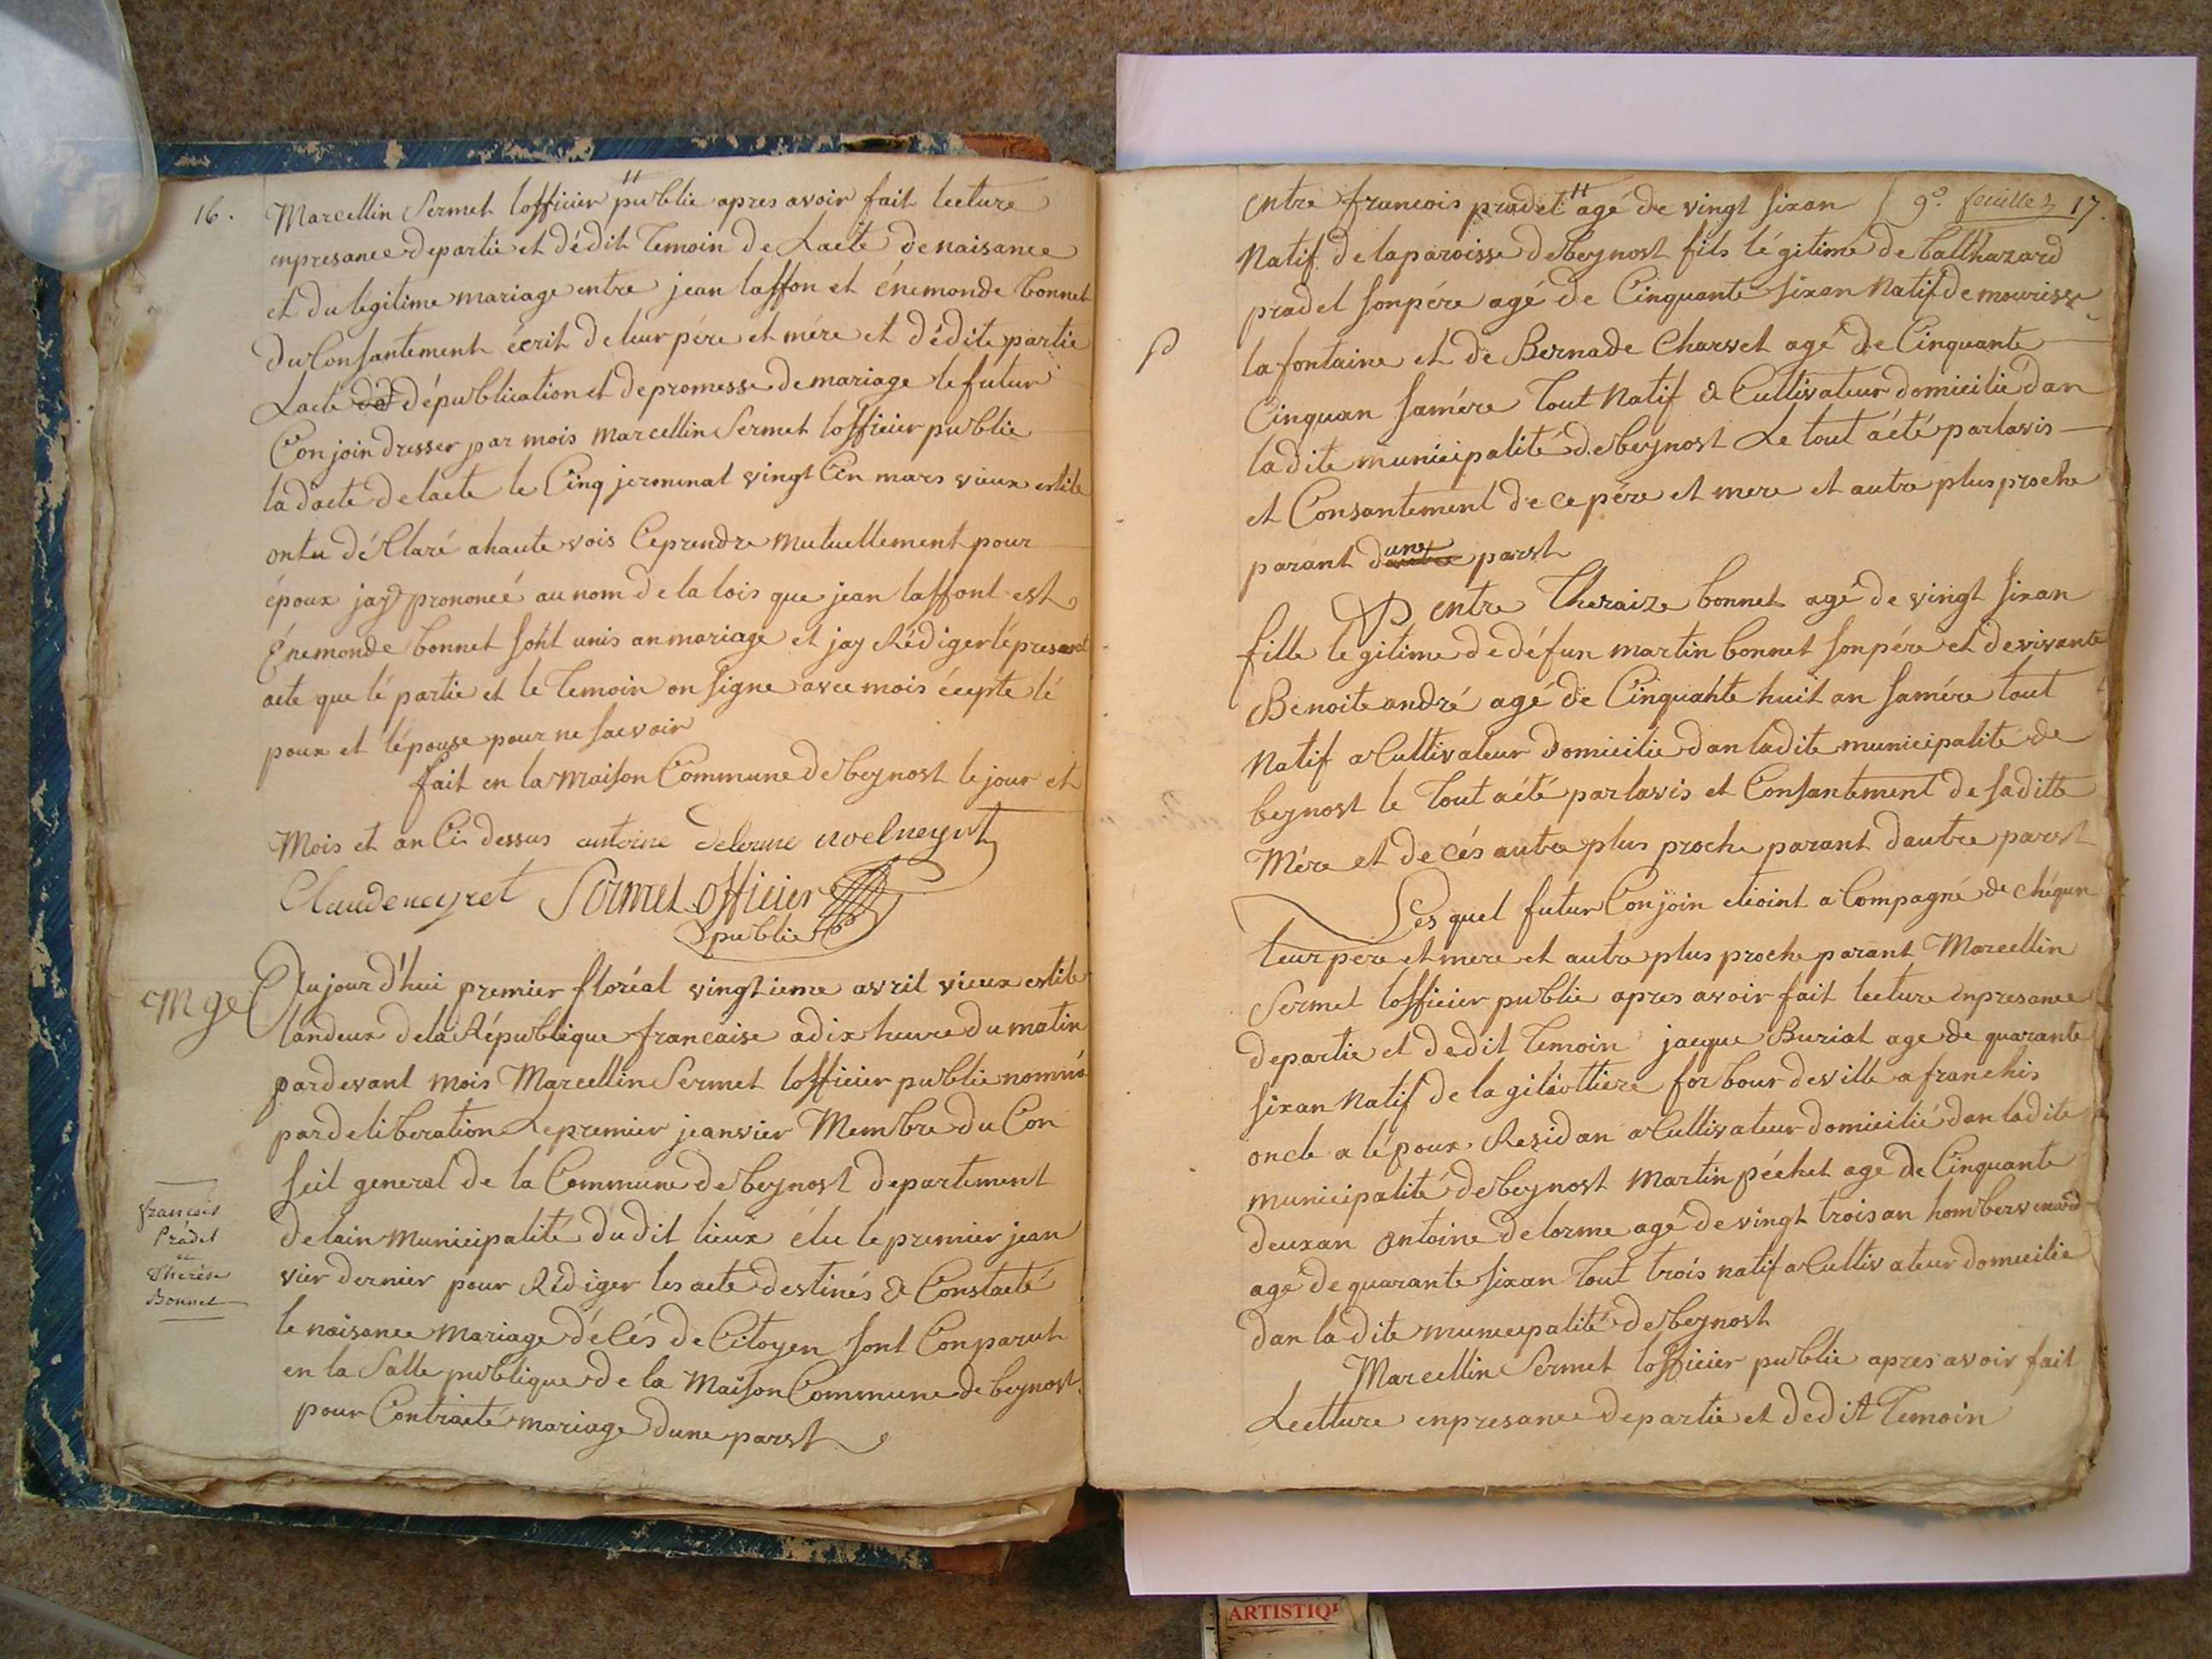 16.
Marcellin Sermet lofficier public apres avoir fait lecture
enpresance departie et dédit temoin de Lacte denaisance
et du legitime mariage entre jean laffon et énemonde bonnet
du Consantement écrit de leur pére et mére et dédite partie
Lacte dépublication et depromesse de mariage le futur
Conjoin dresser par mois marcellin Sermet lofficier public
la dacte delacte le Cinq jerminal vingt Cin mars vieux estile
ontu déClaré ahaute vois Ceprendre mutuellement pour
époux jay prononcé au nom de la lois que jean laffont est
Énemonde bonnet sont unis an mariage et jay Rédiger lépresant
acte que lé partie et le temoin on signe avec mois écepte lé
poux et lépouse pour ne sacvoir
fait en la maison Commune de beynost le jour et
Mois et an Ci dessus antoine delorme noel neyret
Claude neyret Sermet officier
public
Mge
Aujourd'hui premier floréal vingtieme avril vieux estile
landeux de la République francaise adix heure du matin
pardevant mois Marcellin Sermet lofficier public nommé
pardeliberation Lepremier jeanvier Membre du Con
seil general de la Commune de beynost departement
delain municipalité dudit lieux élu le premier jean
vier dernier pour Rédiger les acte destinés & Constacté
le naisance mariage décés de Citoyen sont Conparut
en la Salle publique de la Maison Commune de beynost
pour Contracté mariage dune parst
francois
Pradel
et
Thérèse
Bonnet
9e. feuillet 17.
entre francois pradel agé de vingt sixan
Natif de laparoisse debeynost fils légitime de balthazard
pradel sonpére agé de Cinquante sixan Natif de mourisse
la fontaine et de Bernade Charvet agé de Cinquante
Cinquan samére tout Natif & Cultivateur domicilié dan
ladite municipalité debeynost Le tout aété parlavis
et Consantement de ce pére et mere et autre plus proche
parant dune parst
entre Theraize bonnet agé de vingt sixan
fille legitime de défun martin bonnet sonpére et devivante
Benoite andré agé de Cinquante huit an samére tout
Natif a Cultivateur domicilie dan ladite municipalite de
beynost le tout aété parlavis et Consantement de saditte
Mére et de cés autre plus proche parant dautre parst
Les quel futur Conjoin etioint a Compagné de chéqun
leur pere et mere et autre plus proche parant Marcellin
Sermet lofficier public apres avoir fait lecture enpresance
departie et dedit temoin jacque Buriat age de quarante
sixan Natif de la giliottiere forbour deville a franchis
oncle a lépoux Residan a Cultivateur domicilié dan ladite
municipalité debeynost Martin péchet age de Cinquante
deuxan antoine delorme agé de vingt troisan
agé de quarante sixan tout trois natif a Cultivateur domicilie
dan la dite municipalité debeynost
Marcellin Sermet lofficier public apres avoir fait
Lectture enpresance departie et dedit temoin
ARTISTIQ